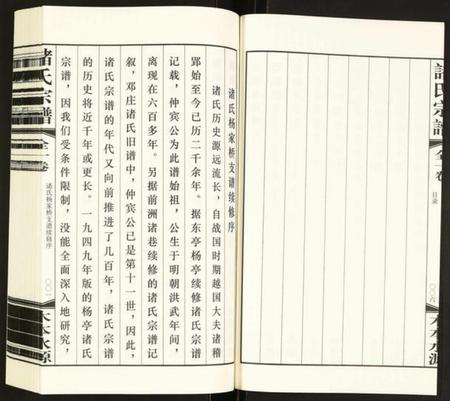 諸氏宗譜
全一卷
目录
〇〇六
木本水源
诸氏杨家桥支谱续修序
诸氏历史源远流长，自战国时期越国大夫诸稽
郢始至今已历二千余年。据东亭杨亭续修诸氏宗谱
记载，仲宾公为此谱始祖，公生于明朝洪武年间，
离现在六百多年。另据前洲诸巷续修的诸氏宗谱记
叙，邓庄诸氏旧谱中，仲宾公已是第十一世，因此，
诸氏宗谱的年代又向前推进了几百年，诸氏宗谱
的历史将近千年或更长。一九四九年版的杨亭诸氏
宗谱，因我们受条件限制，没能全面深入地研究，
诸氏宗谱
全一卷
诸氏杨家桥支谱续修序
木本水源